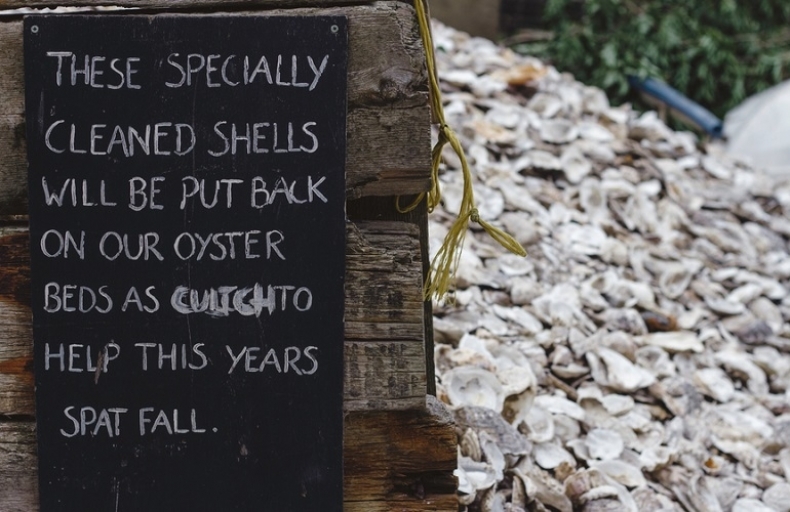 THESE SPECIALLY
CLEANED SHELLS
WILL BE PUT BACK
ON OUR OYSTER
BEDS AS CULTCH TO
HELP THIS YEARS
SPAT FALL.